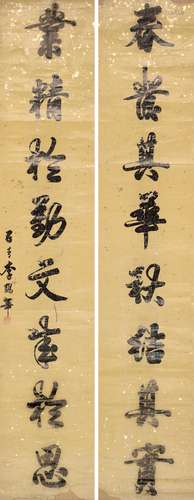 春發其華秋結其實
業精於勤文成於思